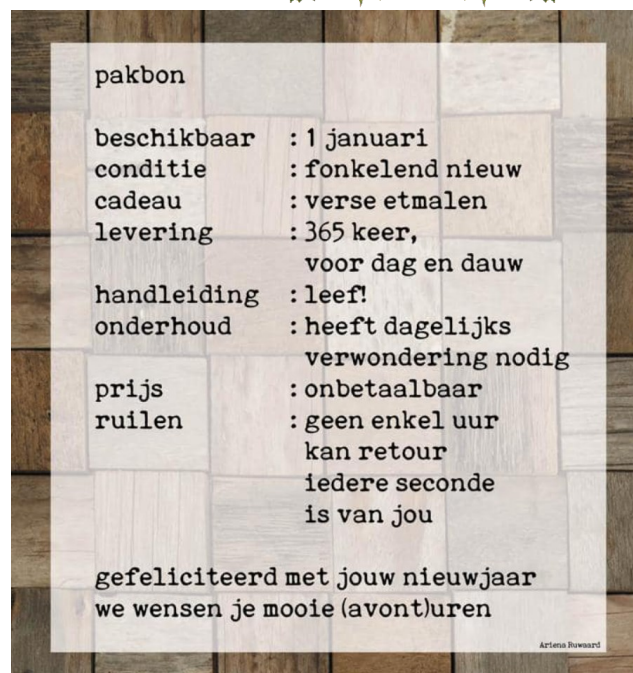 pakbon
beschikbaar : 1 januari
conditie : fonkelend nieuw
cadeau : verse etmalen
levering : 365 keer,
voor dag en dauw
handleiding : leef!
onderhoud : heeft dagelijks
verwondering nodig
prijs : onbetaalbaar
ruilen : geen enkel uur
kan retour
iedere seconde
is van jou
gefeliciteerd met jouw nieuwjaar
we wensen je mooie (avont)uren
Ariena Ruwaard